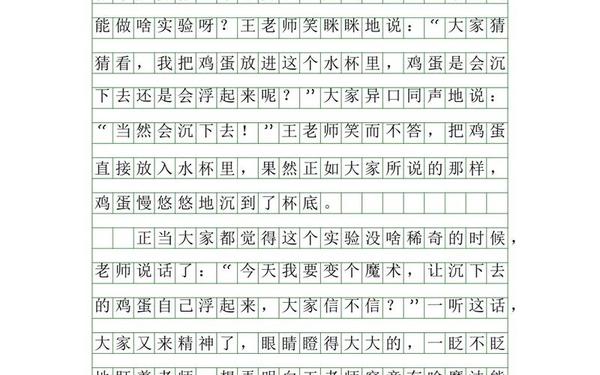 能做啥实验呀？王老师笑眯眯地说：“大家猜
猜看，我把鸡蛋放进这个水杯里，鸡蛋是会沉
下去还是会浮起来呢？”大家异口同声地说：
“当然会沉下去！”王老师笑而不答，把鸡蛋
直接放入水杯里，果然正如大家所说的那样，
鸡蛋慢悠悠地沉到了杯底。
正当大家都觉得这个实验没啥稀奇的时候，
老师说话了：“今天我要变个魔术，让沉下去
的鸡蛋自己浮起来，大家信不信？”一听这话，
大家又来精神了，眼睛瞪得大大的，一眨不眨